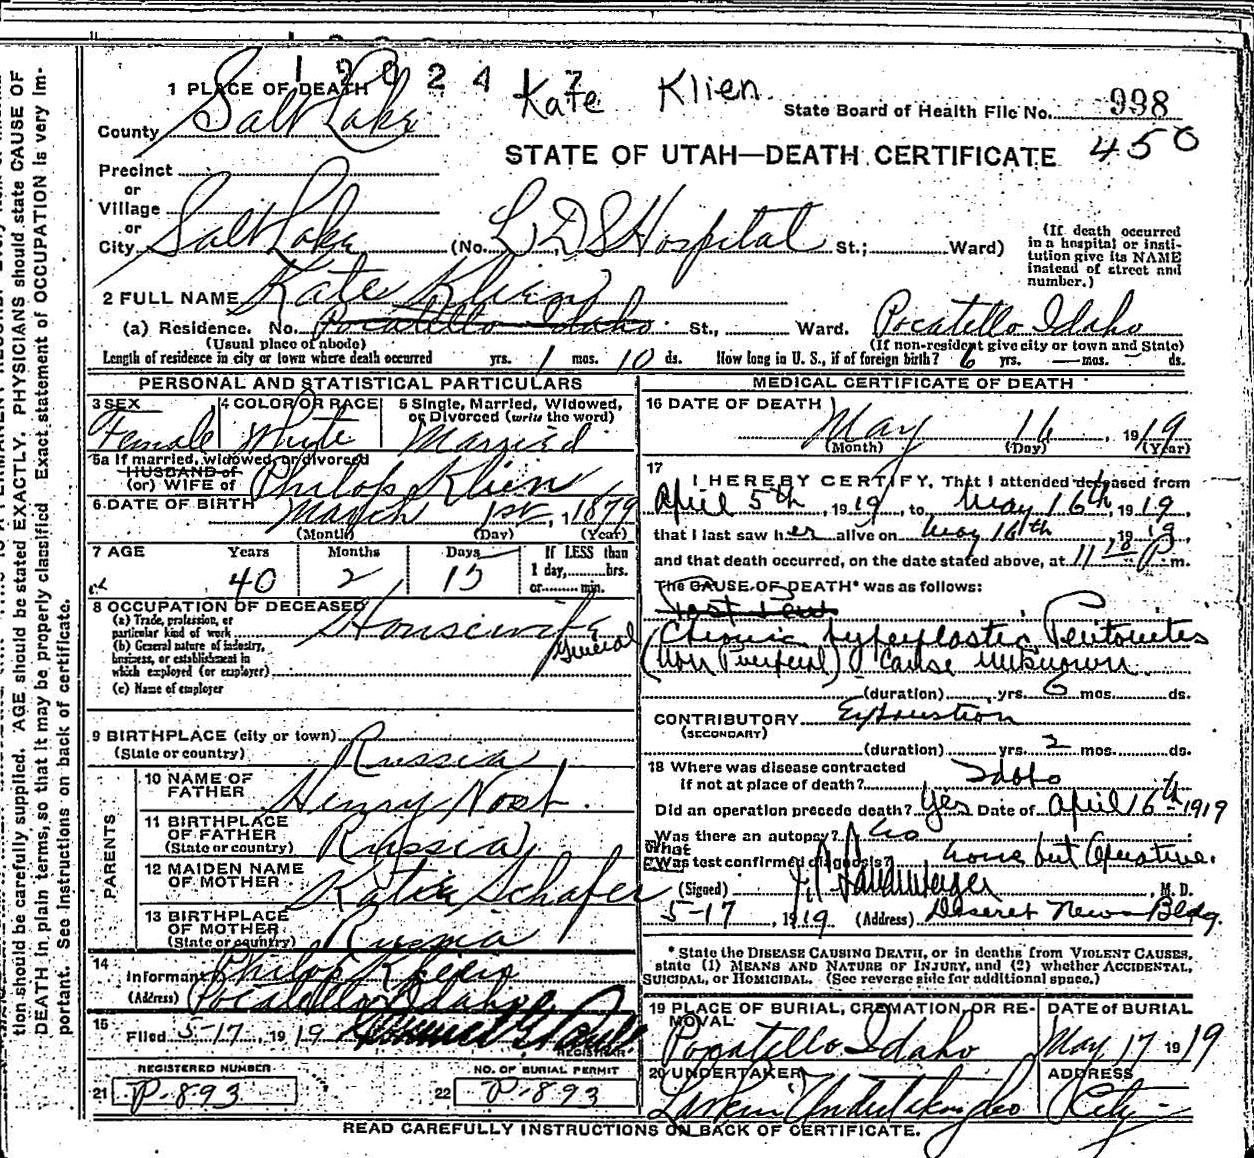 1 2 0 2 4 1 7
Kate Klien
1 PLACE OF DEATH
State Board of Health File No. 998
County Salt Lake
450
STATE OF UTAH—DEATH CERTIFICATE
Precinct
or
Village
or
City Salt Lake (No. L.D.S Hospital St.; Ward)
(If death occurred in a hospital or insti-
tution give its NAME
instead of street and
number.)
2 FULL NAME Kate Klien
(a) Residence. No. Pocatello Idaho St., Ward. Pocatello Idaho
(Usual place of abode) (If non-resident give city or town and State)
Length of residence in city or town where death occurred yrs. 1 mos. 10 ds. How long in U. S., if of foreign birth? 6 yrs. — mos. - ds.
PERSONAL AND STATISTICAL PARTICULARS
3 SEX 4 COLOR OR RACE 5 Single, Married, Widowed,
or Divorced (write the word)
Female White Married
5a If married, widowed, or divorced
HUSBAND of
(or) WIFE of Philop Klien
6 DATE OF BIRTH March 1st, 1879
(Month) (Day) (Year)
7 AGE Years Months Days If LESS than
1 day,......hrs.
or......min.
40 2 15
8 OCCUPATION OF DECEASED
(a) Trade, profession, or
particular kind of work Housewife
(b) General nature of industry,
business, or establishment in
which employed (or employer) General
(c) Name of employer
9 BIRTHPLACE (city or town)
(State or country) Russia
PARENTS
10 NAME OF
FATHER Henry
11 BIRTHPLACE
OF FATHER
(State or country) Russia
12 MAIDEN NAME
OF MOTHER Katie Schafer
13 BIRTHPLACE
OF MOTHER
(State or country) Russia
14
Informant Philop Klein
(Address) Pocatello Idaho
15
Filed 5-17, 1919
REGISTRAR
REGISTERED NUMBER NO. OF BURIAL PERMIT
21 P-893 22 P-893
MEDICAL CERTIFICATE OF DEATH
16 DATE OF DEATH
May 16, 1919
(Month) (Day) (Year)
17
I HEREBY CERTIFY, That I attended deceased from
April 5th, 1919, to May 16th, 1919,
that I last saw her alive on May 16th, 1919,
and that death occurred, on the date stated above, at 11 10 P. m.
The CAUSE OF DEATH* was as follows:
Chronic hyperplastic Peritonites
(Non Puerperal) Cause unknown.
(duration) yrs. 6 mos. ds.
CONTRIBUTORY Exhaustion
(SECONDARY)
(duration) yrs. 2 mos. ds.
18 Where was disease contracted
if not at place of death? Idaho
Did an operation precede death? Yes Date of April 16th 1919
Was there an autopsy? No
What
Was test confirmed diagnosis? none but Operative.
(Signed) , M. D.
5-17, 1919 (Address) Deseret News Bldg.
*State the DISEASE CAUSING DEATH, or in deaths from VIOLENT CAUSES,
state (1) MEANS AND NATURE OF INJURY, and (2) whether ACCIDENTAL,
SUICIDAL, or HOMICIDAL. (See reverse side for additional space.)
19 PLACE OF BURIAL, CREMATION, OR RE-
MOVAL DATE of BURIAL
Pocatello Idaho May 17 1919
20 UNDERTAKER ADDRESS
Larkin Undertaking Co City
READ CAREFULLY INSTRUCTIONS ON BACK OF CERTIFICATE.
tion should be carefully supplied. AGE should be stated EXACTLY. PHYSICIANS should state CAUSE OF
DEATH in plain terms, so that it may be properly classified. Exact statement of OCCUPATION is very im-
portant. See Instructions on back of certificate.